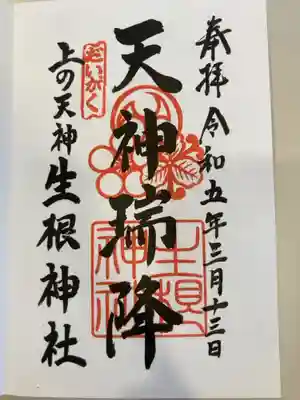 奉拝 令和五年三月十三日
天神瑞降
だいがく
上の天神 生根神社
生根神社